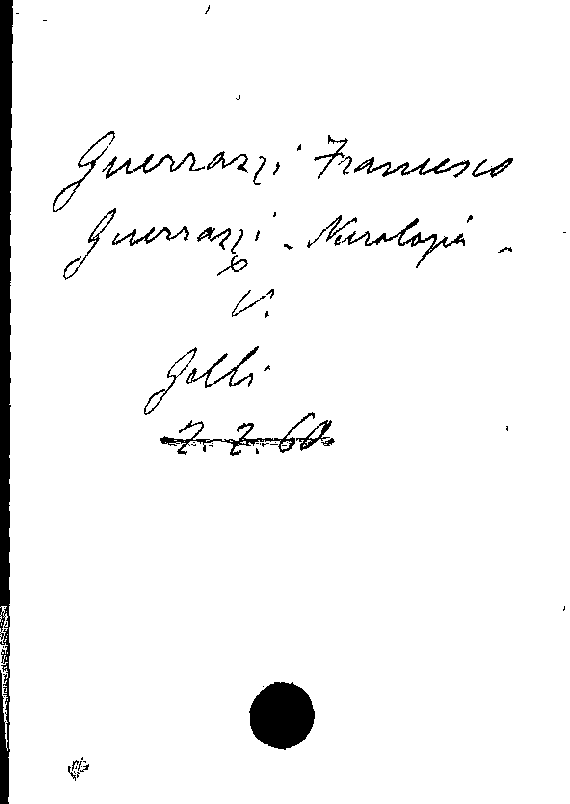 Guerrazzi Francesco
Guerrazzi - Necrologia -
V.
Gelli
2. 2. 60.